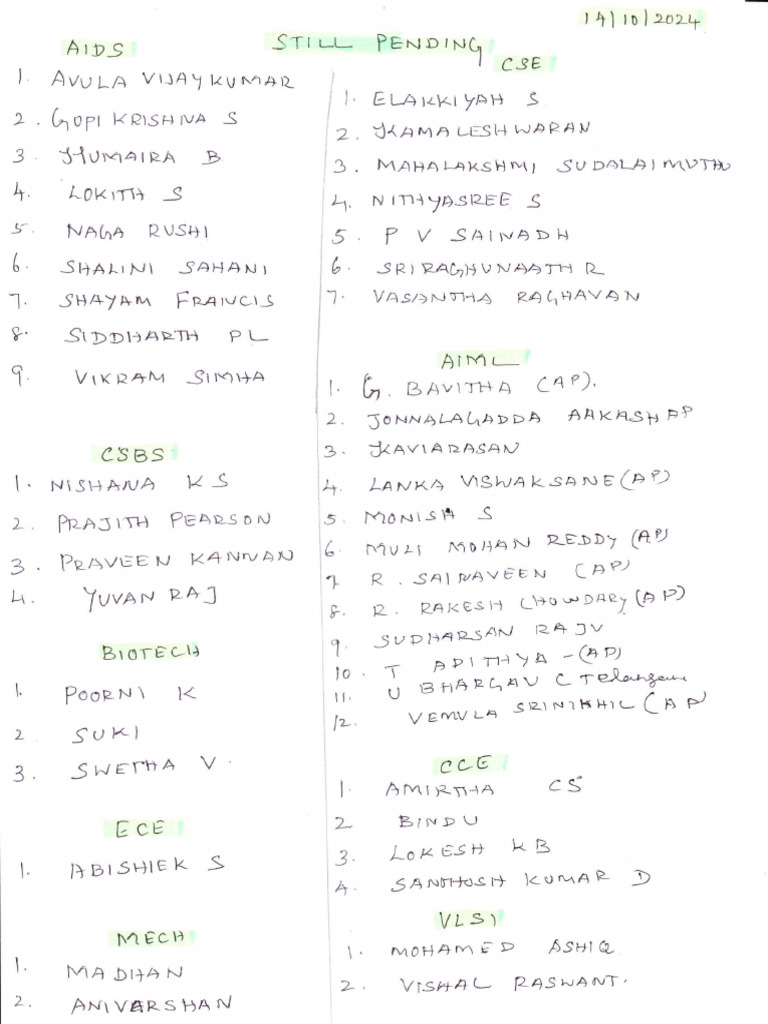 14/10/2024
STILL PENDING
AIDS
1. AVULA VIJAYKUMAR
2. GOPI KRISHNA S
3. HUMAIRA B
4. LOKITH S
5. NAGA RUSHI
6. SHALINI SAHANI
7. SHAYAM FRANCIS
8. SIDDHARTH PL
9. VIKRAM SIMHA
CSBS
1. NISHANA K S
2. PRAJITH PEARSON
3. PRAVEEN KANNAN
4. YUVAN RAJ
BIOTECH
1. POORNI K
2 SUKI
3. SWETHA V.
ECE
1. ABISHIEK S
MECH
1. MADHAN
2. ANIVARSHAN
CSE
1. ELAKKIYAH S
2. KAMALESHWARAN
3. MAHALAKSHMI SUDALAIMUTHU
4. NITHYASREE S
5. P V SAINADH
6. SRIRAGHUNAATH R
7. VASANTHA RAGHAVAN
AIML
1. G. BAVITHA (AP).
2. JONNALAGADDA AAKASH AP
3. KAVIARASAN
4. LANKA VISWAKSANE (AP)
5. MONISH S
6. MULI MOHAN REDDY (AP)
7. R. SAINAVEEN (AP)
8. R. RAKESH CHOWDARY (AP)
9. SUDHARSAN RAJU
10. T ADITHYA - (AP)
11. U BHARGAV ( Telangana
12. VEMULA SRINIKHIL (AP)
CCE
1. AMIRTHA CS
2 BINDU
3. LOKESH KB
4. SANTHOSH KUMAR D
VLSI
1. MOHAMED ASHIQ
2. VISHAL RASWANT.